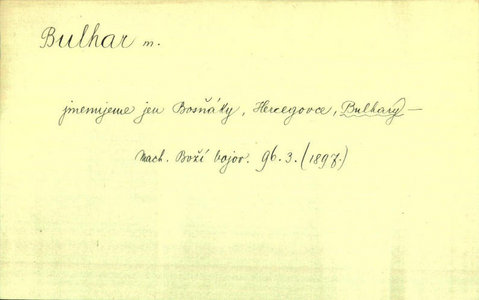 Bulhar m.
jmenujeme jen Bosňáky, Hercegovce, Bulhary —
Mach. Boží bojov. 96. 3. (1897.)